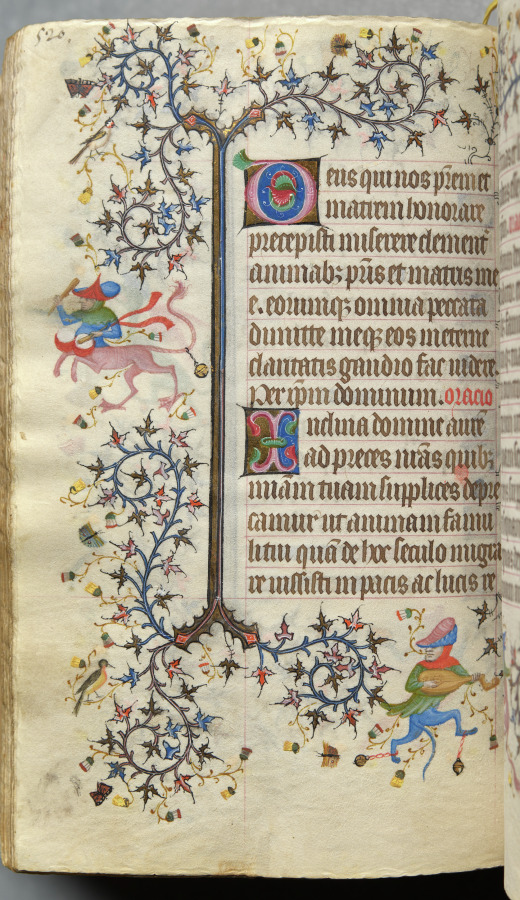 520.
Deus qui nos p̄rem et
matrem honorare
precepisti miserere clement̄
animabꝫ p̄ris et matris me
e. eorumqꝫ omnia peccata
dimitte meqꝫ eos in eterne
claritatis gaudio fac uidere.
Per xp̄m dominum. oracio
Inclina domine aurē
ad preces nr̄as quibꝫ
miām tuam supplices depre
camur ut animam famu
li tui quā de hoc seculo migra
re iussisti in pacis ac lucis re